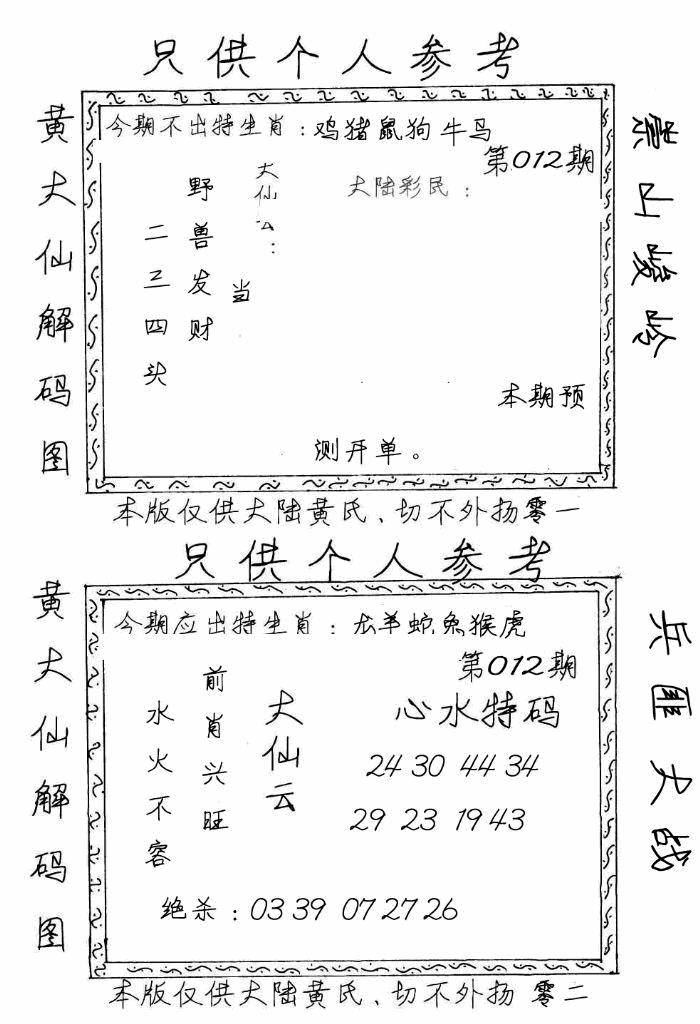 只供个人参考
黄大仙解码图
今期不出特生肖：鸡猪鼠狗牛马
第012期
大陆彩民：
大仙云：
当
野兽发财
二三四头
本期预
测开单。
崇山峻岭
本版仅供大陆黄氏、切不外扬零一
只供个人参考
黄大仙解码图
今期应出特生肖：龙羊蛇兔猴虎
第012期
心水特码
24 30 44 34
29 23 19 43
大仙云
前肖兴旺
水火不容
绝杀：03 39 07 27 26
兵匪大战
本版仅供大陆黄氏、切不外扬零二